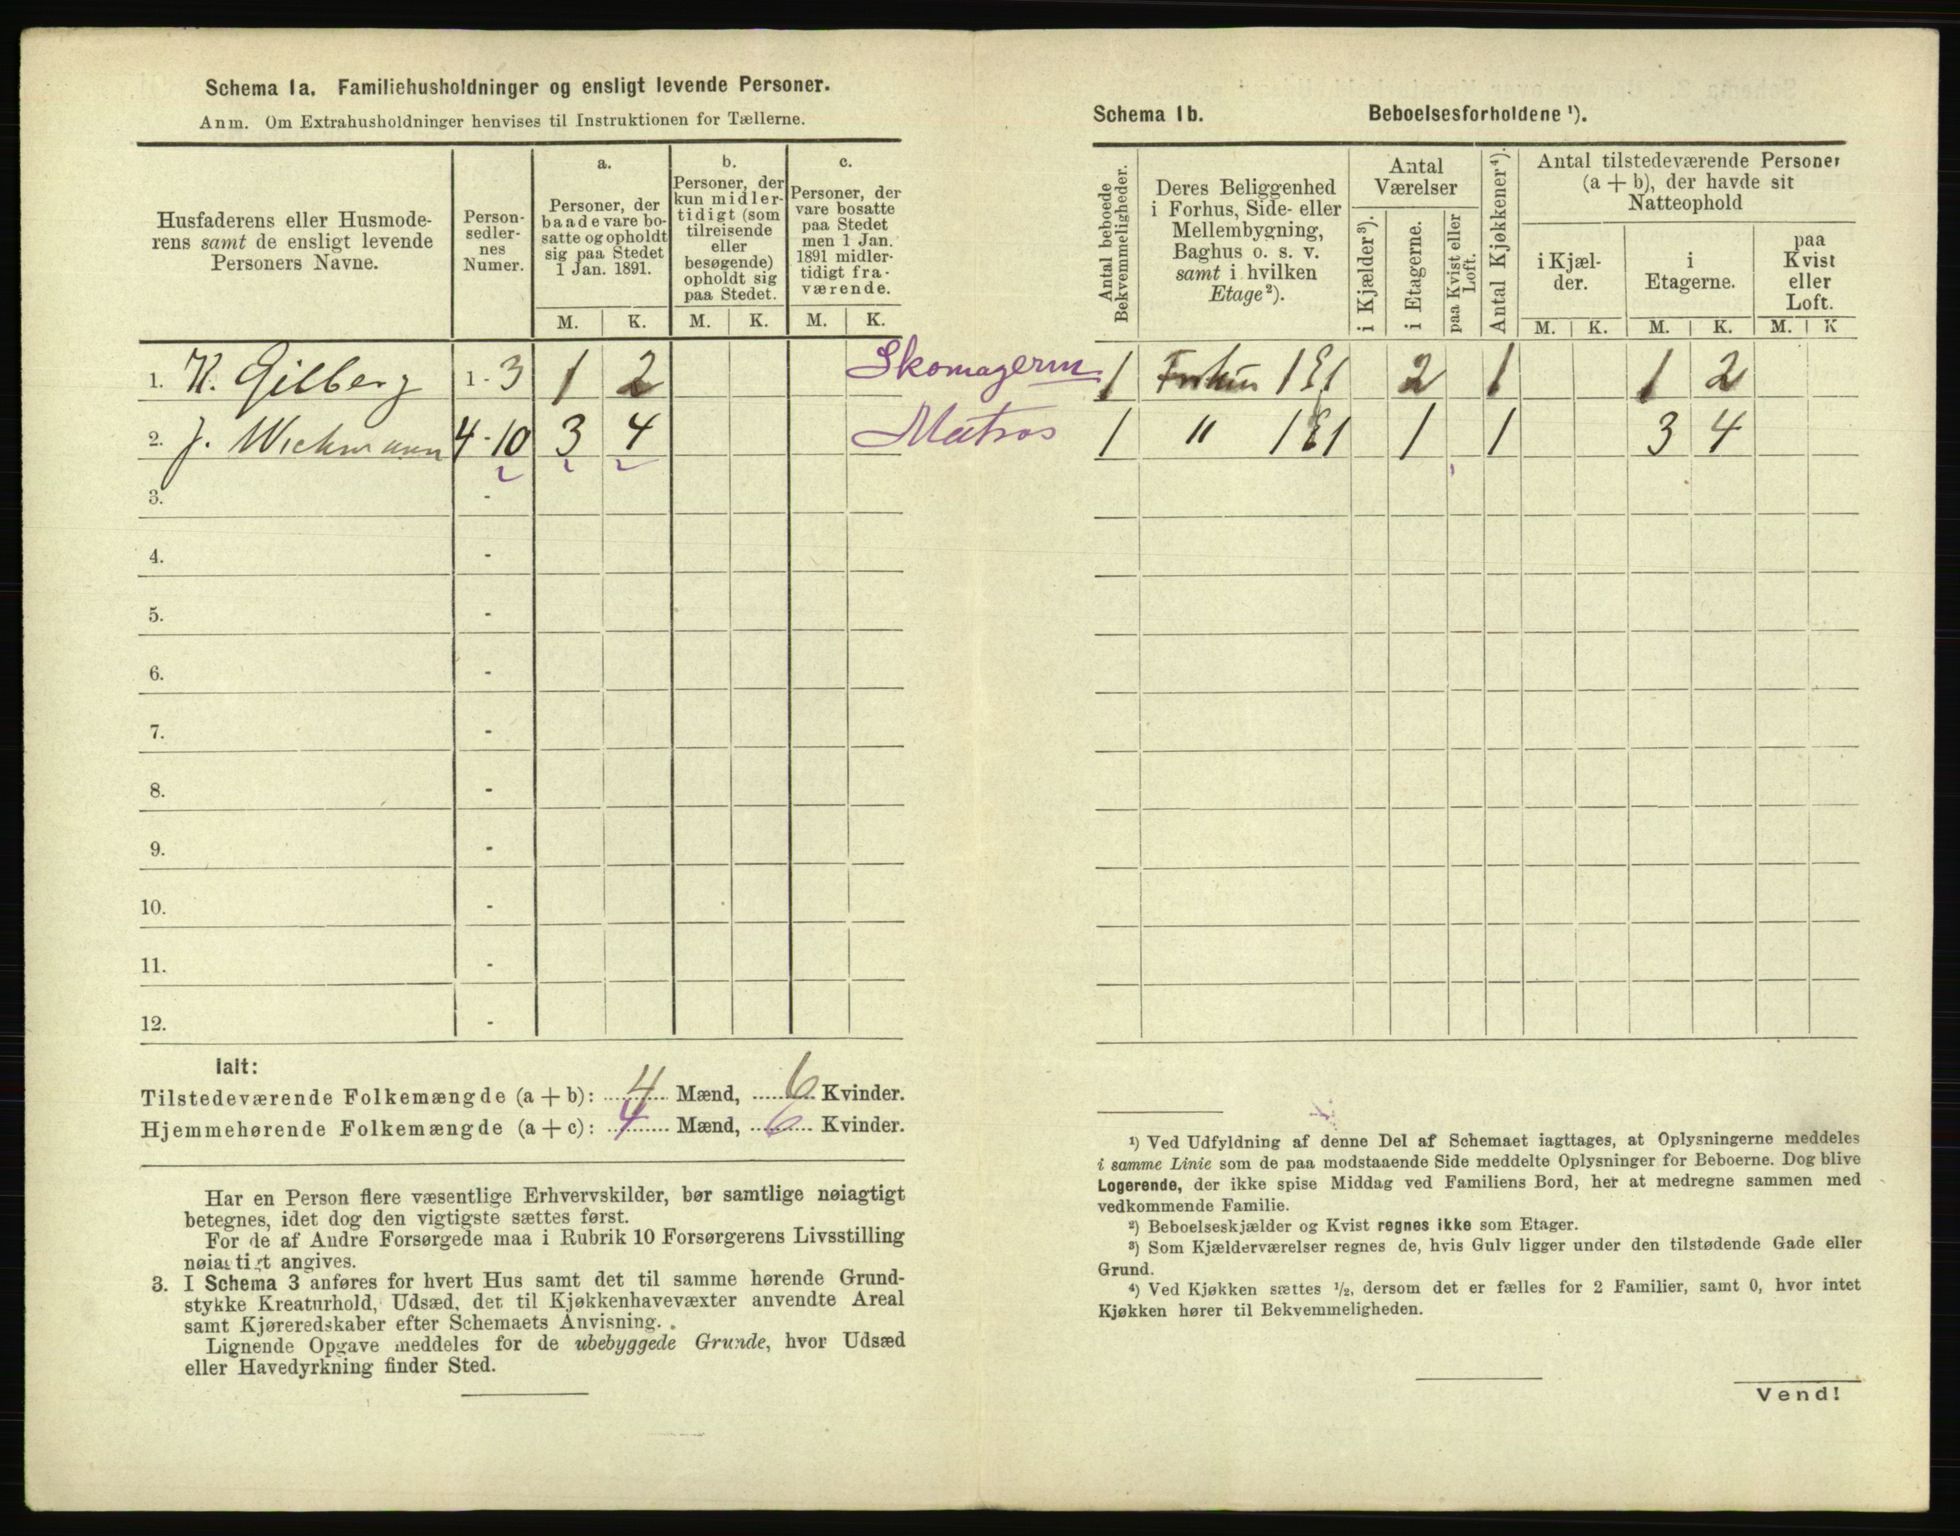 Schema 1a. Familiehusholdninger og ensligt levende Personer.
Anm. Om Extrahusholdninger henvises til Instruktionen for Tællerne.
Husfaderens eller Husmode-
rens samt de ensligt levende
Personers Navne.
Person-
sedler-
nes
Numer.
a.
Personer, der
baade vare bo-
satte og opholdt
sig paa Stedet
1 Jan. 1891.
b.
Personer, der
kun midler-
tidigt (som
tilreisende
eller
besøgende)
opholdt sig
paa Stedet.
c.
Personer, der
vare bosatte
paa Stedet
men 1 Jan.
1891 midler-
tidigt fra-
værende.
M. K. M. K. M. K.
1. K. Gilberg 1 - 3 1 2 Skomagerm
2. J. Wickmann 4 - 10 3 4 Matros
3. -
4. -
5. -
6. -
7. -
8. -
9. -
10. -
11. -
12. -
Ialt:
Tilstedeværende Folkemængde (a + b): 4 Mænd, 6 Kvinder.
Hjemmehørende Folkemængde (a + c): 4 Mænd, 6 Kvinder.
Har en Person flere væsentlige Erhvervskilder, bør samtlige nøiagtigt
betegnes, idet dog den vigtigste sættes først.
For de af Andre Forsørgede maa i Rubrik 10 Forsørgerens Livsstilling
nøiagtigt angives.
3. I Schema 3 anføres for hvert Hus samt det til samme hørende Grund-
stykke Kreaturhold, Udsæd, det til Kjøkkenhavevæxter anvendte Areal
samt Kjøreredskaber efter Schemaets Anvisning.
Lignende Opgave meddeles for de ubebyggede Grunde, hvor Udsæd
eller Havedyrkning finder Sted.
Schema 1b. Beboelsesforholdene ¹).
Antal beboede
Bekvemmeligheder.
Deres Beliggenhed
i Forhus, Side- eller
Mellembygning,
Baghus o. s. v.
samt i hvilken
Etage²).
Antal
Værelser
i Kjælder³).
i Etagerne.
paa Kvist eller
Loft.
Antal Kjøkkener⁴).
Antal tilstedeværende Personer
(a + b), der havde sit
Natteophold
i Kjæl-
der.
i
Etagerne.
paa
Kvist
eller
Loft.
M. K. M. K. M. K
1 Forhus 1 E 1 2 1 1 2
1 " 1 E 1 1 1 3 4
¹) Ved Udfyldning af denne Del af Schemaet iagttages, at Oplysningerne meddeles
i samme Linie som de paa modstaaende Side meddelte Oplysninger for Beboerne. Dog blive
Logerende, der ikke spise Middag ved Familiens Bord, her at medregne sammen med
vedkommende Familie.
²) Beboelseskjælder og Kvist regnes ikke som Etager.
³) Som Kjælderværelser regnes de, hvis Gulv ligger under den tilstødende Gade eller
Grund.
⁴) Ved Kjøkken sættes ½, dersom det er fælles for 2 Familier, samt 0, hvor intet
Kjøkken hører til Bekvemmeligheden.
Vend!